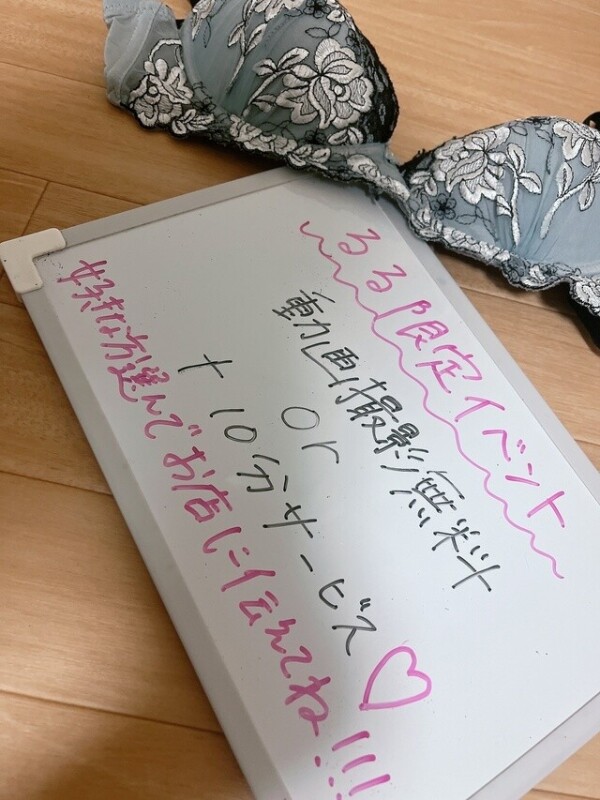 るる限定イベント
動画撮影無料
or
+10分サービス♡
好きな方選んでお店に伝えてね!!!